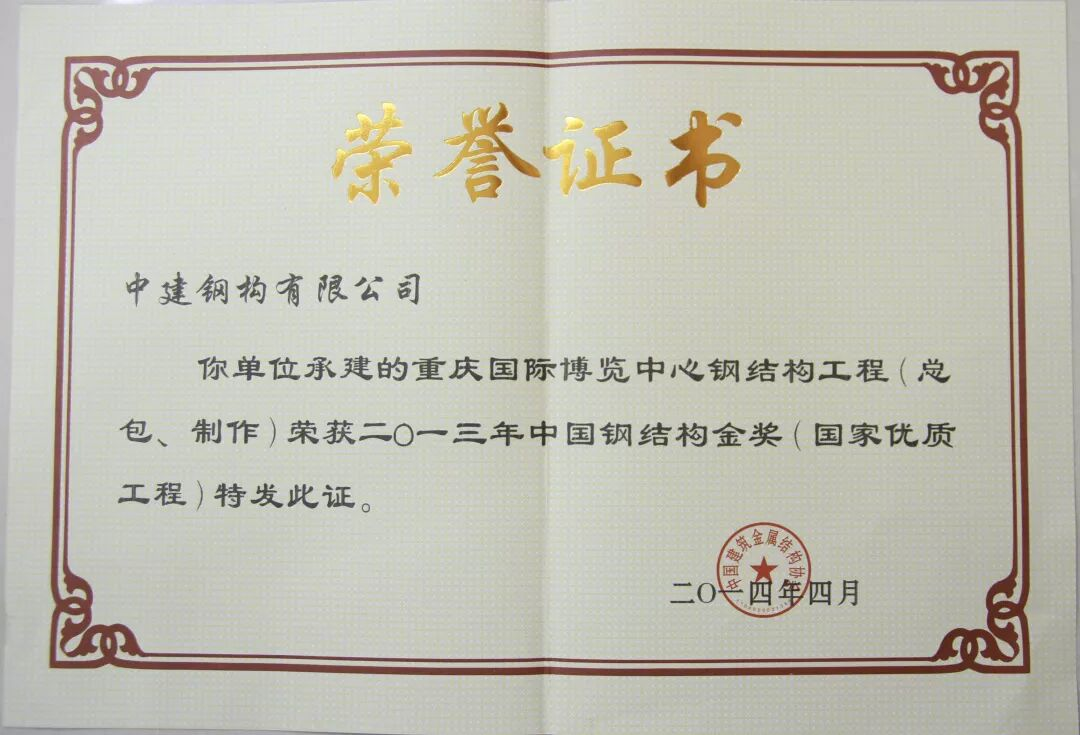 荣誉证书
中建钢构有限公司
你单位承建的重庆国际博览中心钢结构工程（总
包、制作）荣获二〇一三年中国钢结构金奖（国家优质
工程）特发此证。
中国建筑金属结构协会
二〇一四年四月